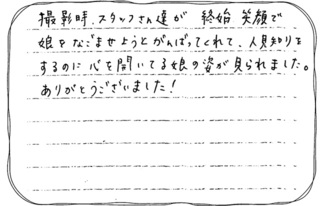 撮影時、スタッフさん達が 終始 笑顔で
娘をなごませようとがんばってくれて、人見知りを
するのに 心を開いてる娘の姿が見られました。
ありがとうございました!